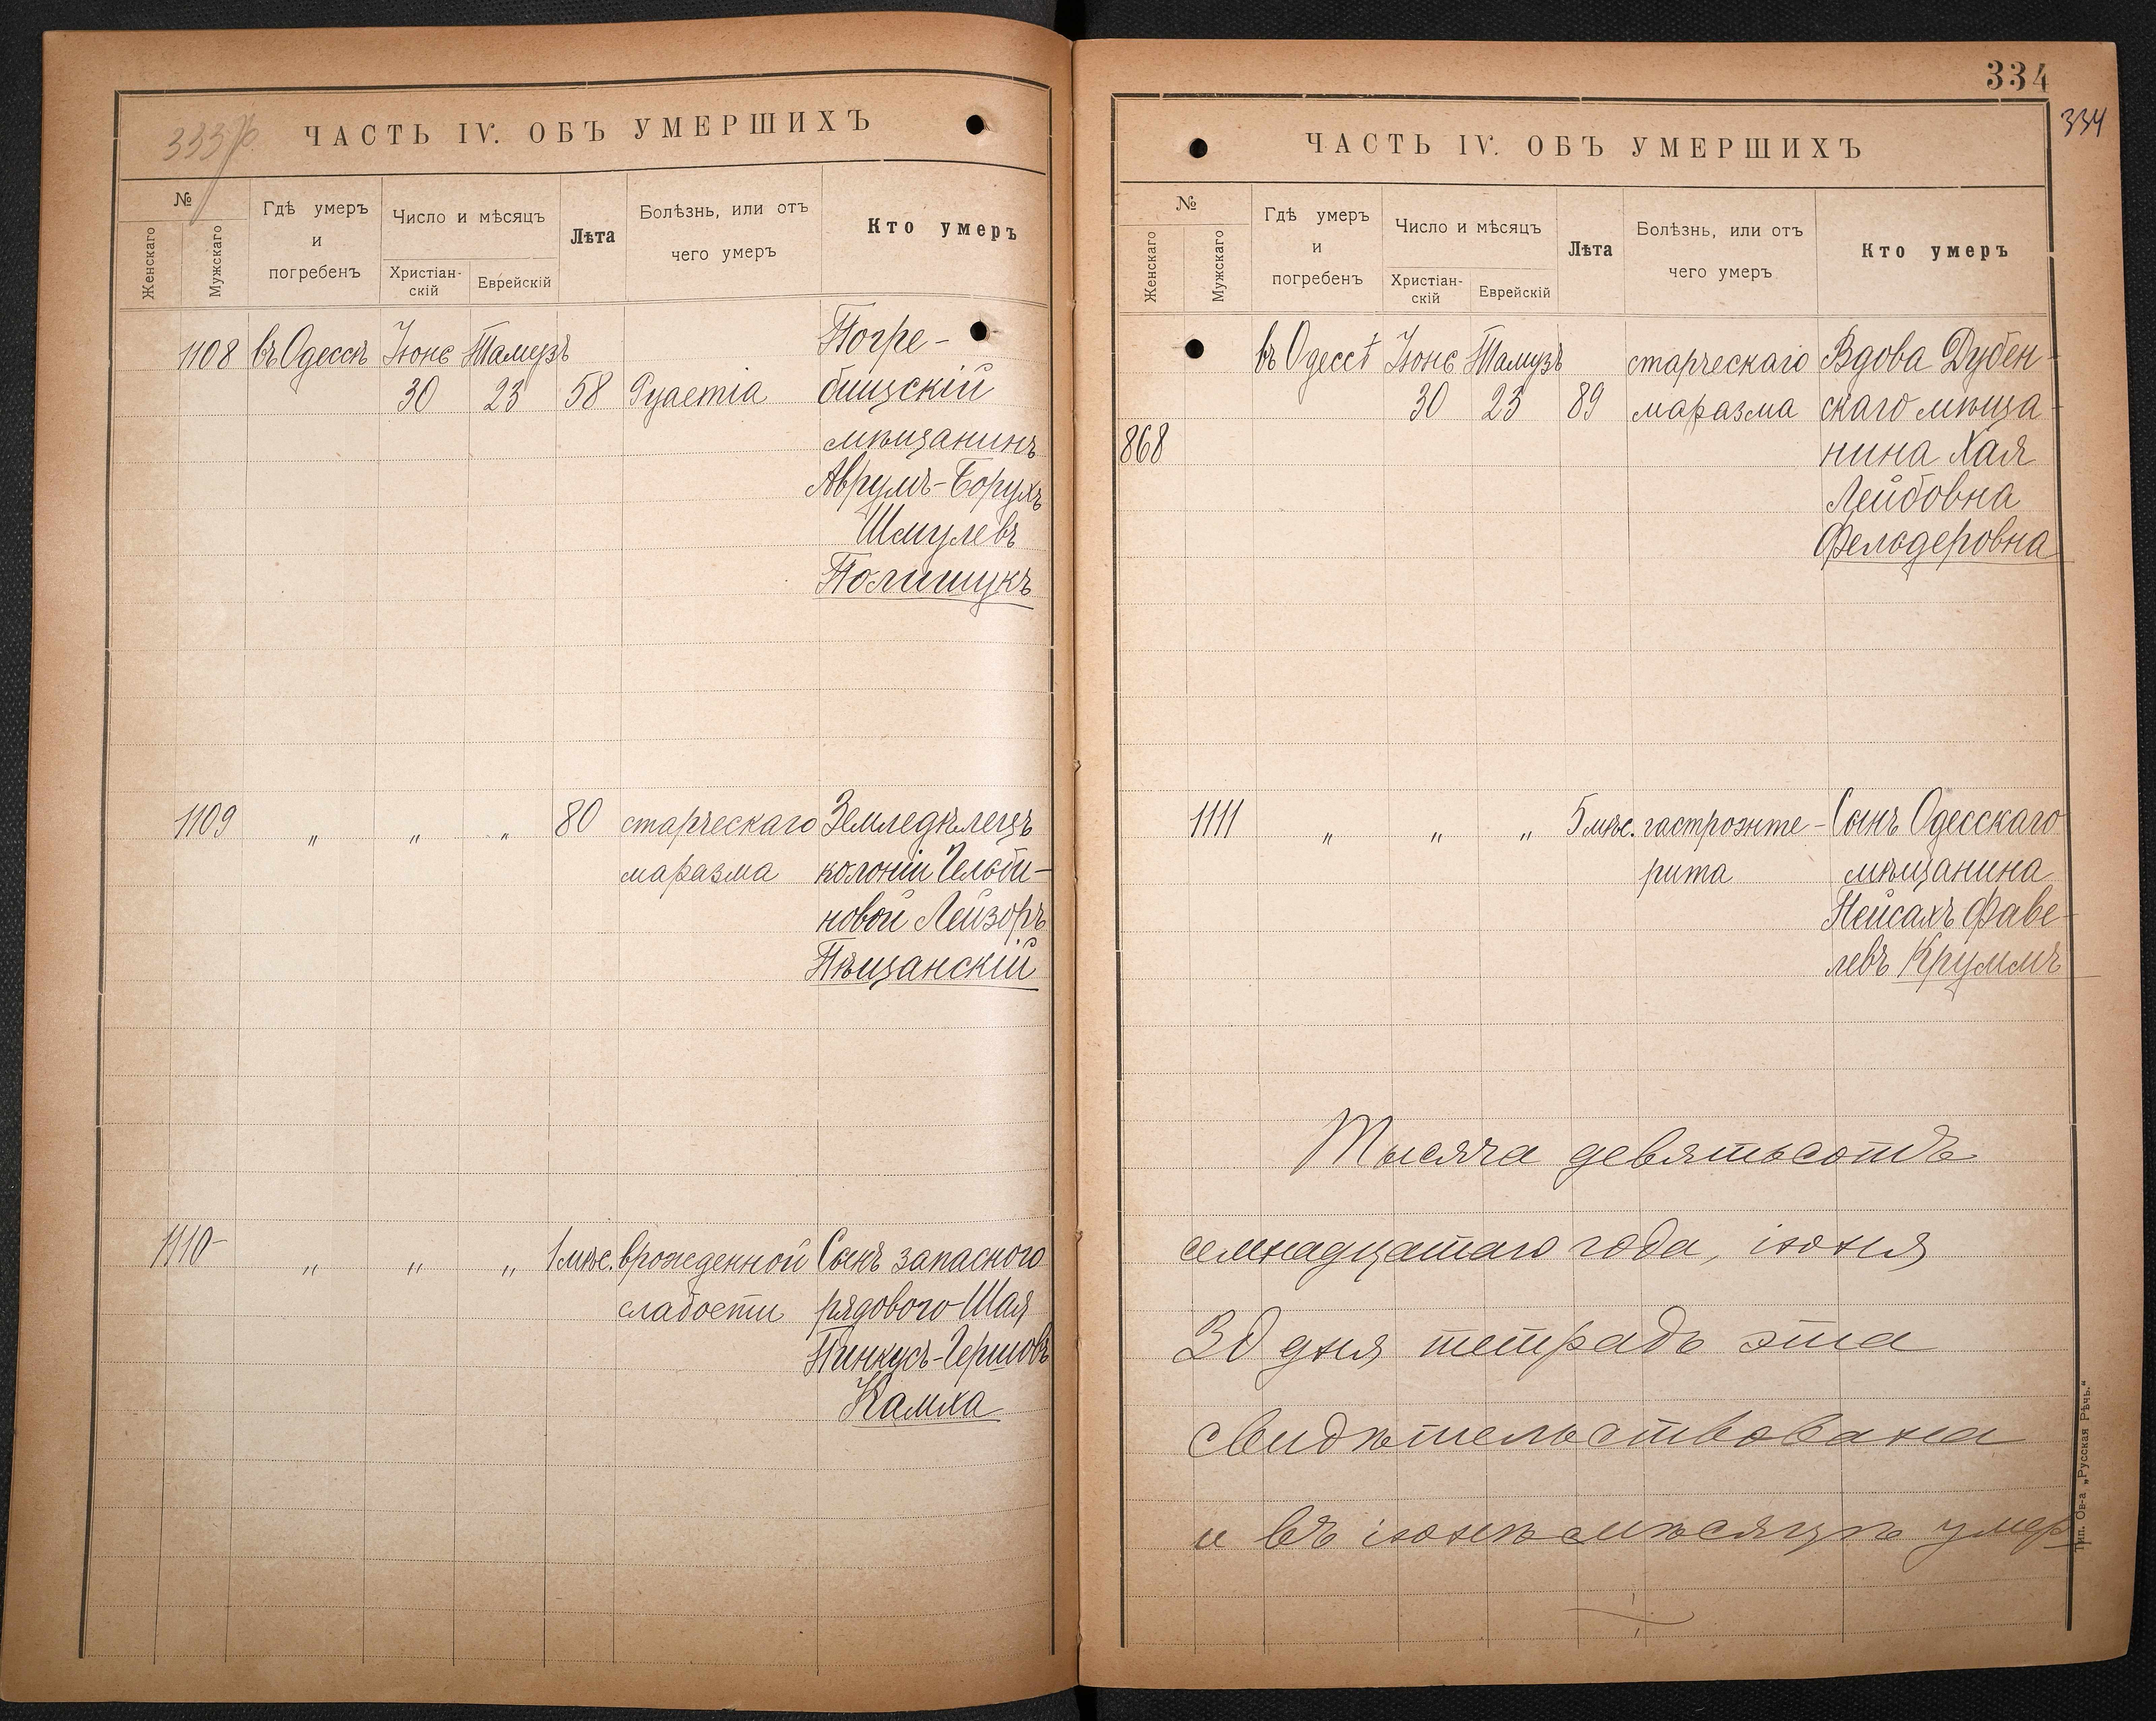 333 об.
ЧАСТЬ IV. ОБЪ УМЕРШИХЪ
№
Женскаго
Мужскаго
Гдѣ умеръ
и
погребенъ
Число и мѣсяцъ
Христіан-
скій
Еврейскій
Лѣта
Болѣзнь, или отъ
чего умеръ
Кто умеръ
1108 въ Одессѣ Іюнь Тамузъ Погре-
30 23 58 бищскій
мѣщанинъ
Аврумъ-Борухъ
Шмулевъ
Полищукъ
1109 „ „ „ 80 старческаго Земледѣлецъ
маразма колоніи Гельби-
новой Лейзоръ
Пѣщанскій
1110 „ „ „ 1 мѣс. врожденной Сынъ запаснаго
слабости рядового Шая
Пинкусъ-Гершовъ
Камха
334
334
ЧАСТЬ IV. ОБЪ УМЕРШИХЪ
№
Женскаго
Мужскаго
Гдѣ умеръ
и
погребенъ
Число и мѣсяцъ
Христіан-
скій
Еврейскій
Лѣта
Болѣзнь, или отъ
чего умеръ
Кто умеръ
въ Одессѣ Іюнь Тамузъ старческаго Вдова Дубен-
30 23 89 маразма скаго мѣща-
868 нина Хая
Лейбовна
Фельдеровна
1111 „ „ „ 5 мѣс. гастроэнте- Сынъ Одесскаго
рита мѣщанина
Пейсахъ Фаве-
левъ Круммъ
Тысяча девятьсотъ
семнадцатаго года, іюня
30 дня тетрадь эта
свидѣтельствована
и въ іюнѣ мѣсяцѣ умер
Тип. Ов-а „Русская Рѣчь.“